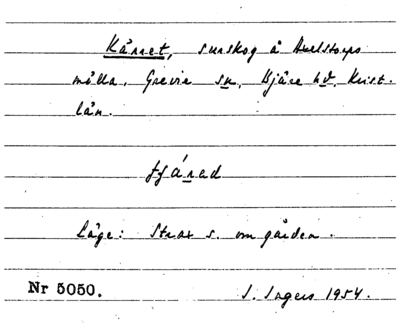 Kärret, surskog å Axelstorps
mölla, Grevie sn, Bjäre hd, Krist.
län.
tjáred
Läge: Strax s. om gården.
Nr 5050. I. Ingers 1954.